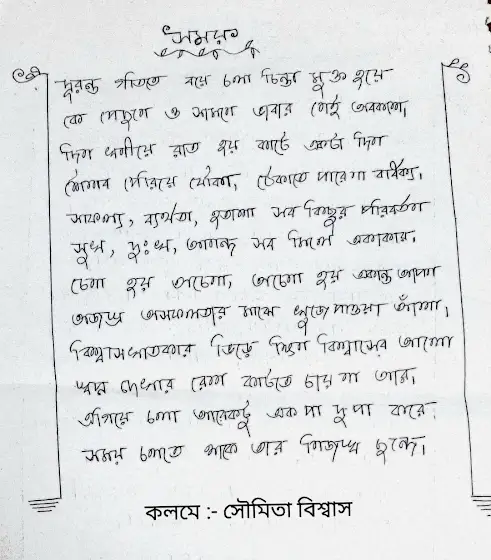 সময়
দুরন্ত গতিতে বয়ে চলা চিন্তা মুক্ত হয়ে
কে পেছনে ও সামনে ভাবার নেই অবকাশ,
দিন ঘনীয়ে রাত হয় কাটে একটা দিন
শৈশব পেরিয়ে যৌবন, ঠেকাতে পারেনা বার্ধক্য,
সাফল্য, ব্যর্থতা, হতাশা সব কিছুর পরিবর্তন
সুখ, দুঃখ, আনন্দ সব মিলে একাকার,
চেনা হয় অচেনা, অচেনা হয় একান্ত আপন
অজস্র অসফলতার মাঝে খুজে পাওয়া আঁশা,
বিশ্বাসঘাতকার ভিড়ে ক্ষিণ বিশ্বাসের আলো
স্বপ্ন দেখার রেশ কাটতে চায় না আর,
এগিয়ে চলা আরেকটু এক পা দু পা করে,
সময় চলতে থাকে তার নিজস্ব ছন্দে,
কলমে :- সৌমিতা বিশ্বাস